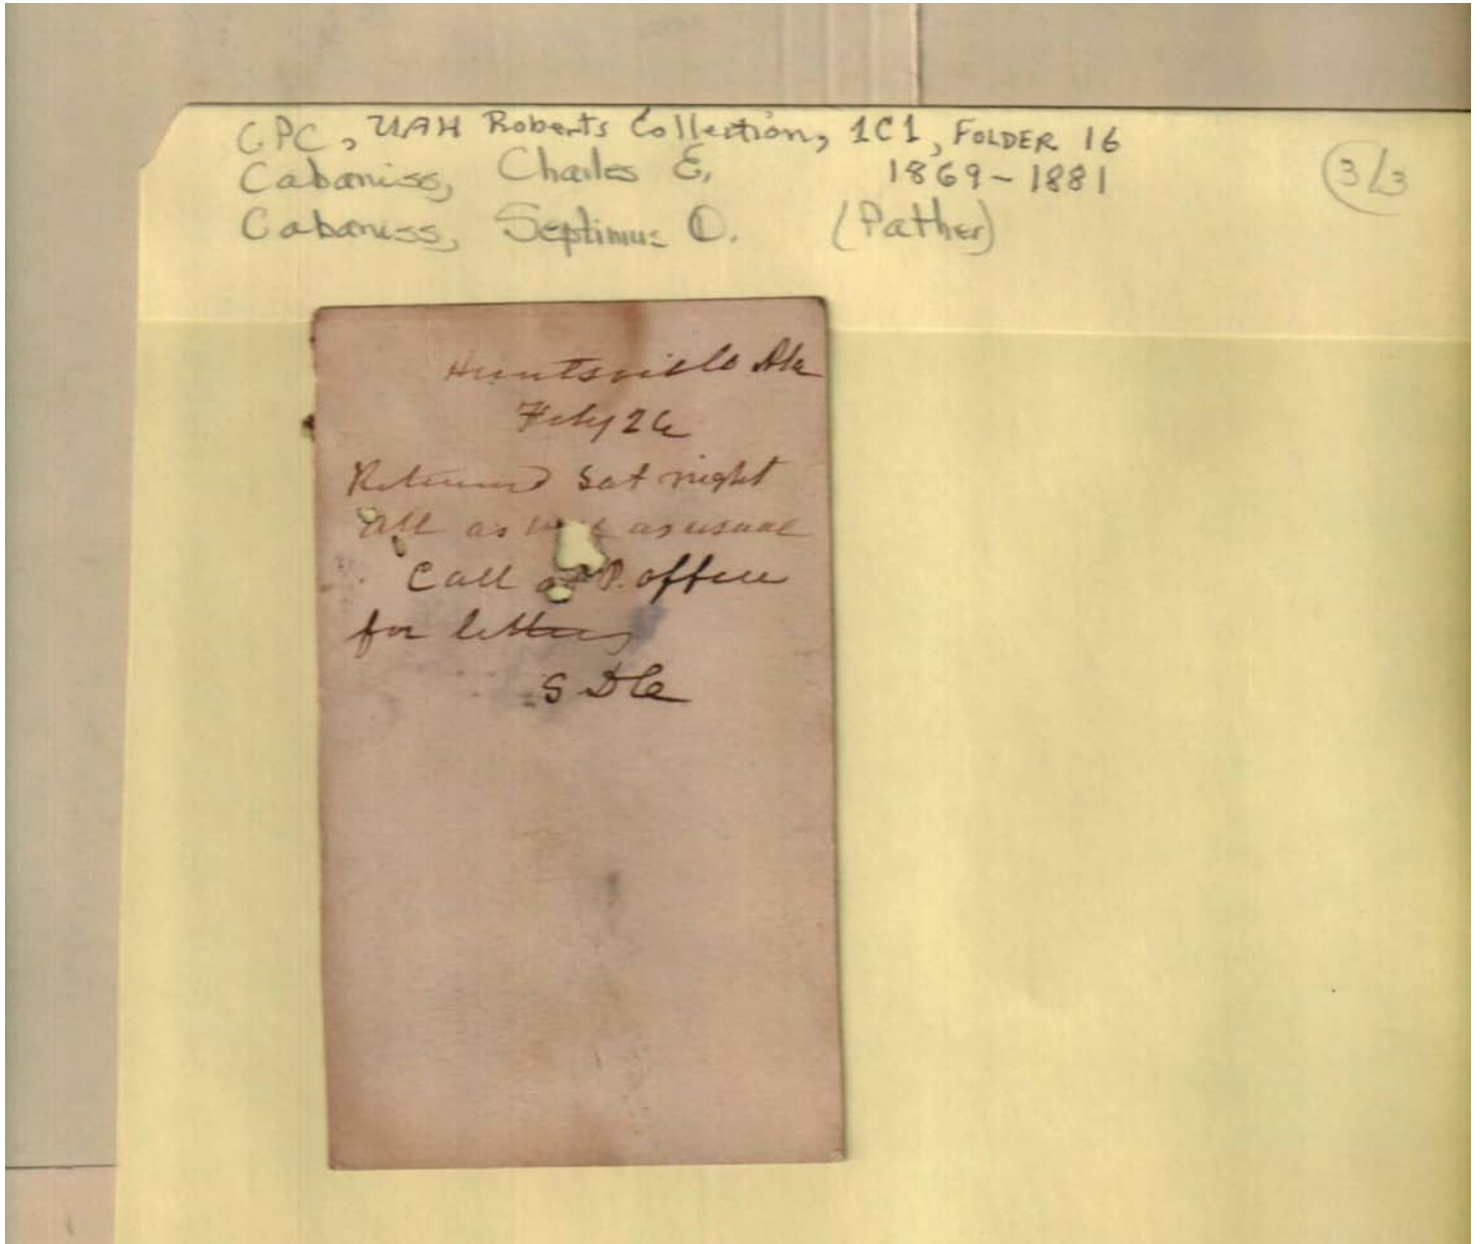 CPC, UAH Roberts Collection, 1C1, FOLDER 16
Cabaniss, Charles E. 1869-1881 3/3
Cabaniss, Septimus D. (Father)
Huntsville Ala
Feby 26
Returned Sat night
All as as usual
Call at P. office
for letters
S D C